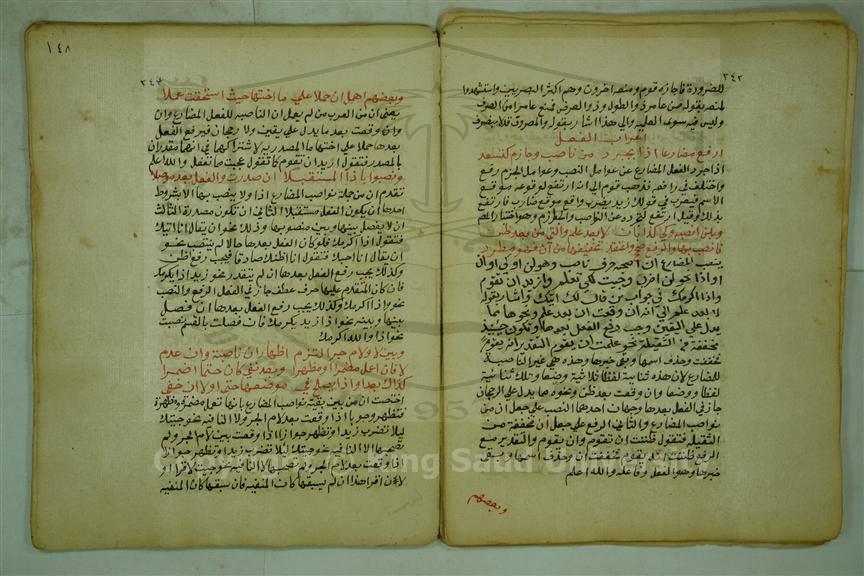 ٣٤٢
للضرورة فاجازه قوم ومنعه اخرون وهم اكثر البصريين واستشهدوا
لمنعه بقوله ومن عامر ذو الطول وذو العرض فمنع عامر من الصرف
وليس فيه سوى العلميه والى هذا اشار بقوله والمصروف قد لا ينصرف
اعراب الفعل
ارفع مضارعا اذا يجرد من ناصب وجازم كتسعد
اذا جرد الفعل المضارع عن عوامل النصب وعوامل الجزم رفع
واختلف في رافعه فذهب قوم الى انه ارتفع لوقوعه موقع
الاسم فيضرب في قولك زيد يضرب واقع موقع ضارب فارتفع
بذلك وقيل ارتفع لتجرده من الناصب والجازم وهو اختيار المص
وبلن انصبه وكي كذا بان لا بعد علم والتي من بعد ظن
فانصب بها والرفع صحح واعتقد تخفيفها من ان فهو مطرد
ينصب المضارع اذا صحبه حرف ناصب وهو لن او كي او ان
او اذا نحو لن اضرب وجيت لكي تعلم واريد ان تقوم
واذا اكرمك في جواب من قال لك اتيك واشار بقوله
لا بعد علم الى انه ان وقعت ان بعد علم ونحوه مما
يدل على اليقين وجب رفع الفعل بعدها وتكون حينئذ
مخففة من الثقيلة نحو علمت ان يقوم التقدير انه يقوم
فخففت وحذف اسمها وبقي خبرها وهذه هي غير الناصبة
للمضارع لان هذه ثنائية لفظا ثلاثية وضعا وتلك ثنائية
لفظا ووضعا وان وقعت بعد ظن ونحوه مما يدل على الرجحان
جاز في الفعل بعدها وجهان احدهما النصب على جعل ان من
نواصب المضارع والثاني الرفع على جعل ان مخففة من
الثقيله فتقول ظننت ان تقوم وان يقوم والتقدير مع
الرفع ظننت انه يقوم فخففت ان وحذف اسمها وبقي
خبرها وهو الفعل وفاعله والله اعلم
وبعضهم
١٤٨
٣٤٣
وبعضهم اهمل ان حملا على ما اختها حيث استحقت عملا
يعنى ان من العرب من لم يعمل ان الناصبة للفعل المضارع وان
وان وقعت بعد ما يدل على يقين ولا رجحان فيرفع الفعل
بعدها حملا على اختها ما المصدرية لاشتراكهما في انهما مقدران
بالمصدر فتقول اريد ان تقوم كما تقول عجبت مما تفعل والله اعلم
ونصبوا باذا المستقبلا ان صدرت والفعل بعد موصلا
تقدم ان من جملة نواصب المضارع اذا ولا ينصب بها الا بشروط
احدها ان يكون الفعل مستقبلا الثاني ان تكون مصدرة الثالث
ان لا يفصل بينها وبين منصوبها وذلك نحو ان يقال انا اتيك
فتقول اذا اكرمك فلو كان الفعل بعدها حالا لم ينتصب نحو
ان يقال انا احبك فتقول اذا اظنك صادقا فيجب رفع اظن
وكذلك يجب رفع الفعل بعدها ان لم يتصدر نحو زيد اذا يكرمك
فان كان المتقدم عليها حرف عطف جاز في الفعل الرفع والنصب
نحو واذا اكرمك وكذلك يجب رفع الفعل بعدها ان فصل
بينها وبينه نحو اذا زيد يكرمك فان فصلت بالقسم نصبت
نحو اذا والله اكرمك
وبين لا ولام جر التزم اظهار ان ناصبة وان عدم
لا فان اعمل مضمرا او مظهرا وبعد نفي كان حتما اضمرا
كذاك بعد او اذا يصلح في موضعها حتى او الا ان خفي
اختصت ان من بين بقية نواصب المضارع بانها تعمل مضمرة ومظهرة
فتظهر وجوبا اذا وقعت بعد لام الجر ولا النافيه نحو جيتك
ليلا تضرب زيدا وتظهر جوازا اذا وقعت بين لام الجر ولم
تصحبها لا النافيه نحو جيتك ليلا تضرب زيدا وتظهر جوازا
اذا وقعت بعد لام الجر ولم تصحبها لا النافيه نحو جيت لاقرا او
لان اقرا هذا ان لم يسبقها كان المنفيه فان سبقها كان المنفيه